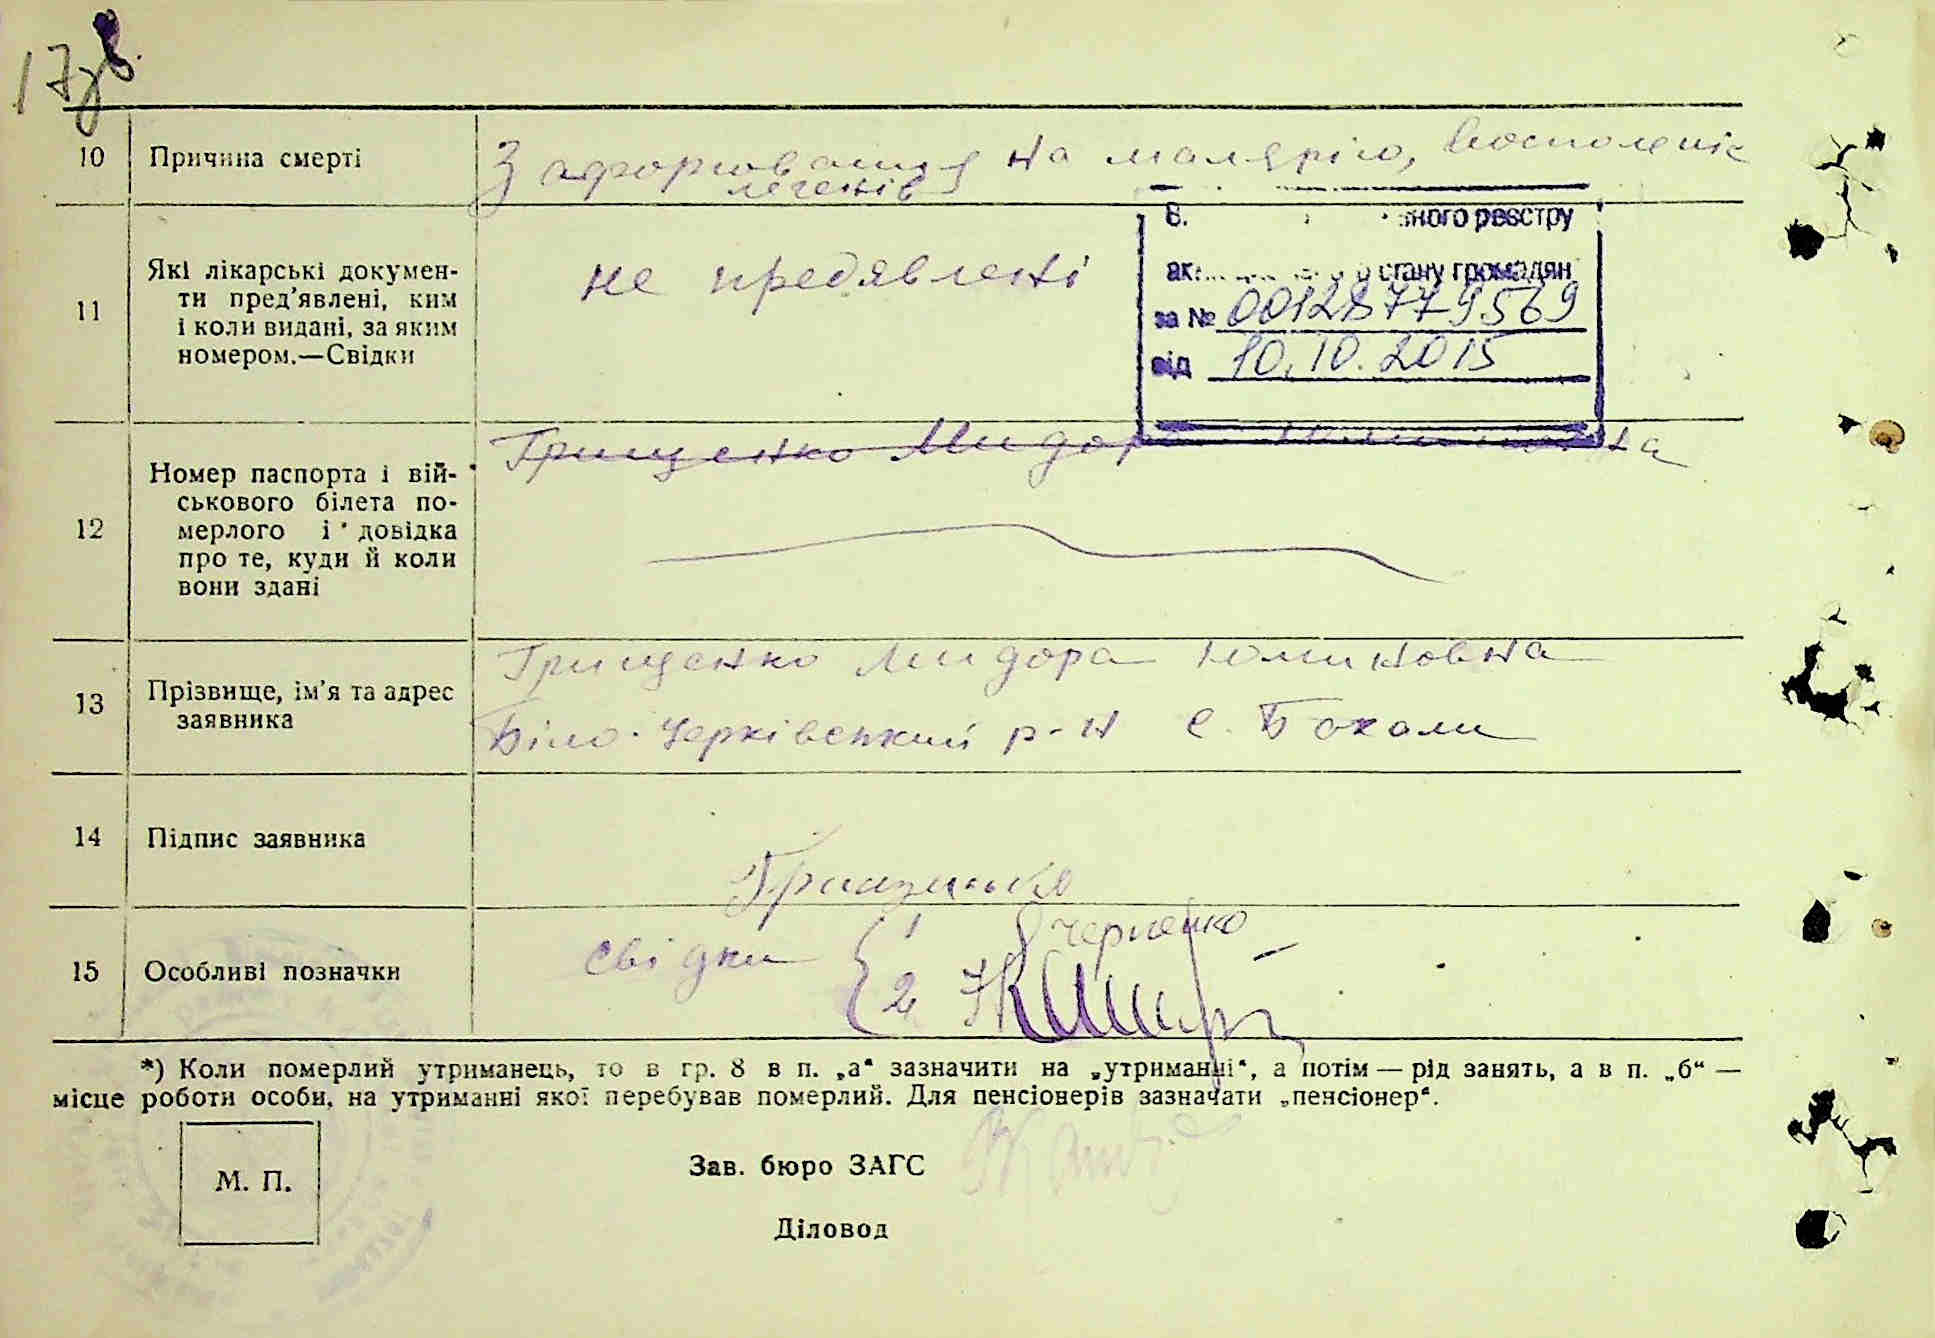 17зв
10 Причина смерті
Захорювання на малярію, восполеніє
легенів
11 Які лікарські докумен-
ти пред’явлені, ким
і коли видані, за яким
номером.—Свідки
не предявлені
ного реєстру
стану громадян
за № 00128779569
від 10.10.2015
12 Номер паспорта і вій-
ськового білета по-
мерлого і довідка
про те, куди й коли
вони здані
Грищенко Мидора
13 Прізвище, ім’я та адрес
заявника
Грищенко Мидора Юминовна
Біло-Черківський р-н с. Бакали
14 Підпис заявника
15 Особливі позначки
свідки { 1 Черненко
2
*) Коли померлий утриманець, то в гр. 8 в п. „а“ зазначити на „утриманні“, а потім — рід занять, а в п. „б“ —
місце роботи особи, на утриманні якої перебував померлий. Для пенсіонерів зазначати „пенсіонер“.
М. П.
Зав. бюро ЗАГС
Діловод